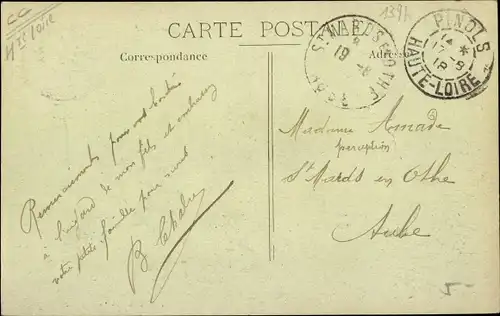 CC
Hte Loire
139h
CARTE POSTALE
Correspondance
Adresse
ST MARDS EN OTHE
AUBE
19 -8
PINOLS
14 *
17 -8
18
HAUTE-LOIRE
Remerciements pour vos bontés
à l'égard de mon fils et embrassez
votre petite famille pour nous
B Chabrier
Madame Amade
perception
St Mards en Othe
Aube
5-